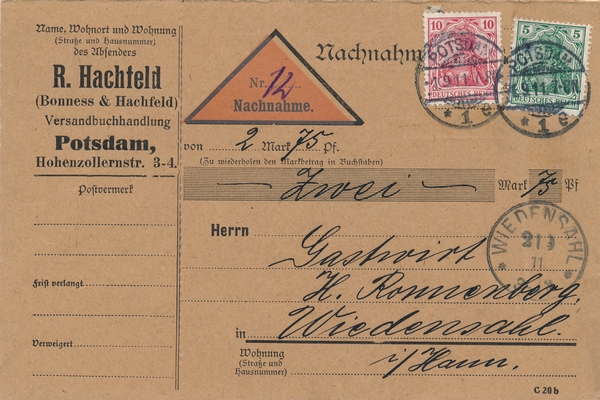 Name, Wohnort und Wohnung
(Straße und Hausnummer)
des Absenders
R. Hachfeld
(Bonness & Hachfeld)
Versandbuchhandlung
Potsdam,
Hohenzollernstr. 3-4.
Postvermerk
Frist verlangt
Verweigert
Nr. 12
Nachnahme.
10
DEUTSCHES REICH
5
DEUTSCHES REICH
POTSDAM
* 1 e
POTSDAM
* 1 e
von 2 Mark 75 Pf.
(Zu wiederholen den Markbetrag in Buchstaben)
— Zwei — Mark 75 Pf
Herrn
Gastwirt
H. Ronnenberg,
in Wiedensahl.
i/Hann.
Wohnung
(Straße und
Hausnummer)
* WIEDENSAHL *
11
C 20b